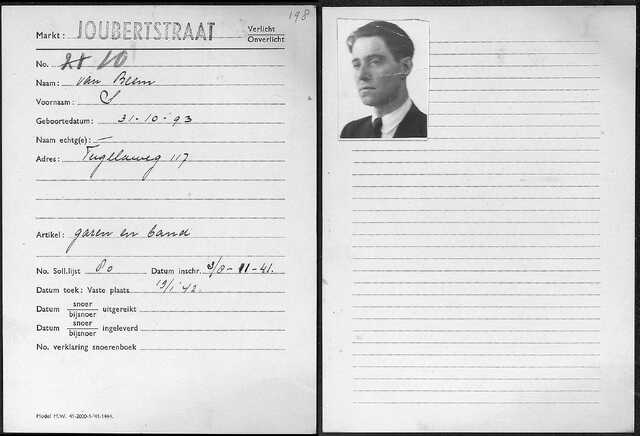 198
Markt: JOUBERTSTRAAT Verlicht
Onverlicht
No. 28 10
Naam: van Beem
Voornaam: S
Geboortedatum: 31-10-93
Naam echtg(e): —
Adres: Tugelaweg 117
Artikel: garen en band
No. Soll.lijst Datum inschr. 3/8-11-41.
Datum toek: Vaste plaats 19/1 '42.
Datum snoer
bijsnoer uitgereikt
Datum snoer
bijsnoer ingeleverd
No. verklaring snoerenboek
Model M.W.